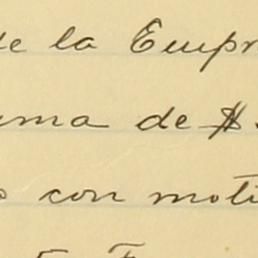 de la Empr
uma de $.
s con moti